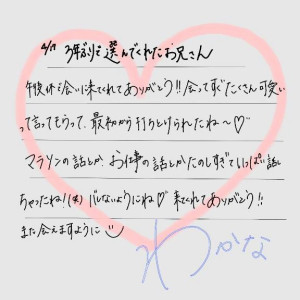 4/17 3年ぶりに選んでくれたお兄さん
午後休で会いに来てくれてありがとう!!会ってすぐたくさん可愛い
って言ってもらって、最初から打ちとけられたね〜♡
マラソンの話とか お仕事の話とかたのしすぎていっぱい話し
ちゃったね!(笑) バレないようにね♡ 来てくれてありがとう!!
また会えますように
わかな